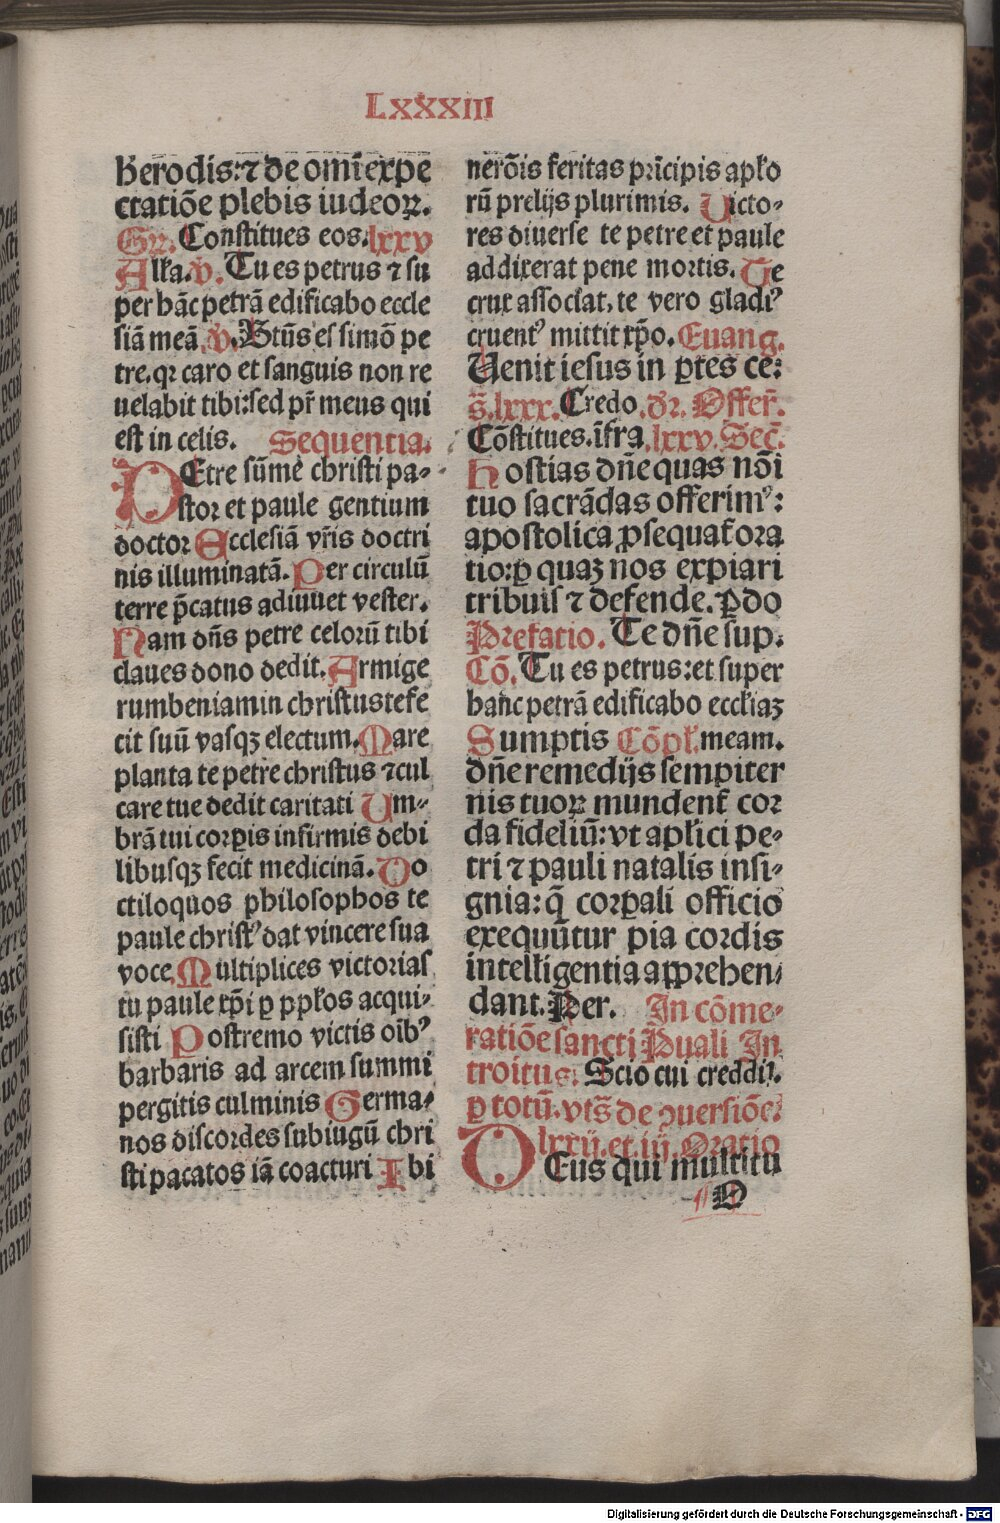 LXXXXIII
herodis: ⁊ de omī expe
ctatiōe plebis iudeoꝝ.
Gr̄. Constitues eos. lxxv
Alľa. ꝟ. Tu es petrus ⁊ su
per hāc petrā edificabo eccle
siā meā ꝟ. Btūs es simō pe
tre. qꝛ caro et sanguis non re
uelabit tibi: sed pr̄ meus qui
est in celis. Sequentia.
PEtre sūme christi pa⸗
stor et paule gentium
doctor Ecclesiā vr̄is doctri
nis illuminatā. Per circulū
terre p̄catus adiuuet vester.
Nam dn̄s petre celorū tibi
claues dono dedit. Armige
rum beniamin christus te fe
cit suū vasqꝫ electum. Mare
planta te petre christus ⁊ cul
care tue dedit caritati Um⸗
brā tui corꝑis infirmis debi
libusqꝫ fecit medicinā. Do
ctiloquos philosophos te
paule christꝰ dat vincere sua
voce Multiplices victorias
tu paule xp̄i ꝑ ppľos acqui⸗
sisti Postremo victis oībꝰ
barbaris ad arcem summi
pergitis culminis Germa⸗
nos discordes sub iugū chri
sti pacatos iā coacturi Ibi
nerōis feritas prīcipis apľo
rū prelijs plurimis. Uicto⸗
res diuerse te petre et paule
addixerat pene mortis. Te
crux associat, te vero gladiꝰ
cruentꝰ mittit xp̄o. Euang.
Uenit iesus in ꝑtes ce:
s̄. lxxx. Credo. dr̄. Offer̄.
Cōstitues. īfra. lxxv. Sec̄.
Hostias dn̄e quas nōi
tuo sacrādas offerimꝰ:
apostolica ꝓsequať ora
tio: ꝑ quaꝫ nos expiari
tribuis ⁊ defende. ꝑ do
Prefatio. Te dn̄e sup.
Cō. Tu es petrus: et super
hanc petrā edificabo eccľiaꝫ
Sumptis Cōpľ. meam.
dn̄e remedijs sempiter
nis tuoꝝ mundenť cor
da fideliū: vt apľici pe⸗
tri ⁊ pauli natalis insi⸗
gnia: q̄ corꝑali officio
exequūtur pia cordis
intelligentia apprehen⸗
dant. Per. In cōme⸗
ratiōe sancti Pauli In
troitus. Scio cui credidi.
ꝑ totū. vts̄ de ꝯuersiōe.
lxxij. et. iij. Oratio
DEus qui multitu
D
Digitalisierung gefördert durch die Deutsche Forschungsgemeinschaft - DFG